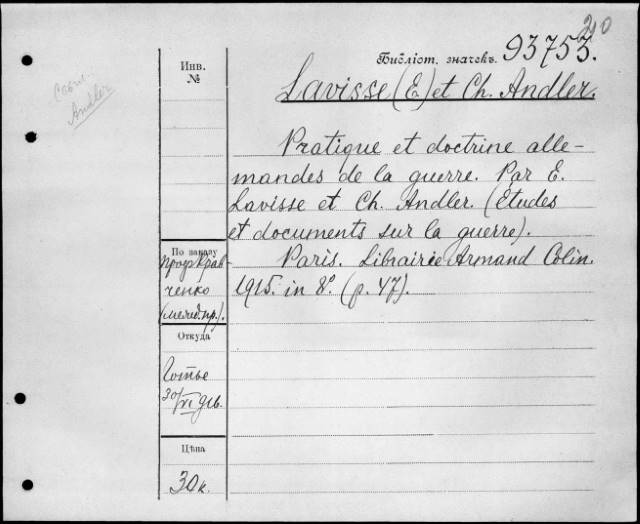 20
Библіот. значекъ 93753.
Инв.
№
Lavisse (E.) et Ch. Andler.
Andler
Pratique et doctrine alle-
mandes de la guerre. Par E.
Lavisse et Ch. Andler. (Études
et documents sur la guerre).
Paris. Librairie Armand Colin.
1915. in 8°. (p. 47).
По заказу
проф Крав-
ченко
(межд. пр.).
Откуда
Готье
30/VI 916.
Цѣна
30 к.